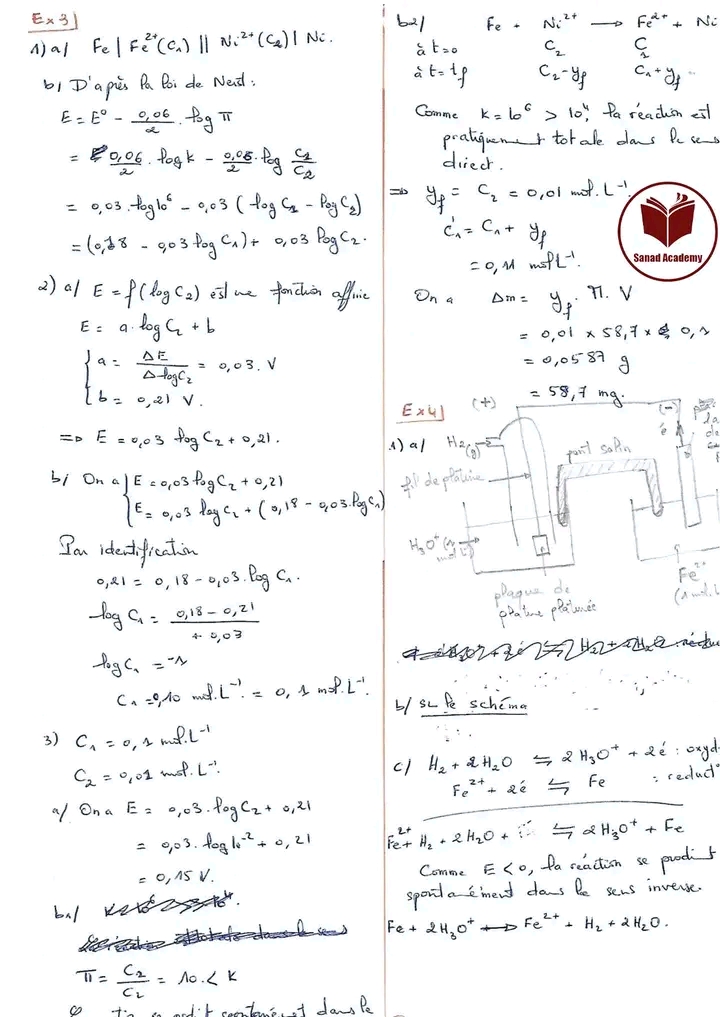 Ex 3
1) a/ Fe | Fe²⁺(C₁) || Ni²⁺(C₂) | Ni.
b/ D'après la loi de Nernst:
E = E° - 0,06/2 . log π
= 0,06/2 . log k - 0,06/2 log C₁/C₂
= 0,03 . log 10⁶ - 0,03 ( log C₁ - log C₂)
= (0,18 - 0,03 log C₁) + 0,03 log C₂.
2) a/ E = f(log C₂) est une fonction affine
E = a. log C₂ + b
a = ΔE/Δ log C₂ = 0,03. V
b = 0,21 V.
=> E = 0,03 log C₂ + 0,21.
b/ On a E = 0,03 log C₂ + 0,21
E = 0,03 log C₂ + (0,18 - 0,03. log C₁)
Par identification
0,21 = 0,18 - 0,03. log C₁.
log C₁ = 0,18 - 0,21 / + 0,03
log C₁ = -1
C₁ = 0,10 mol.L⁻¹ = 0,1 mol.L⁻¹.
3) C₁ = 0,1 mol.L⁻¹
C₂ = 0,01 mol.L⁻¹.
a/ On a E = 0,03. log C₂ + 0,21
= 0,03. log 10⁻² + 0,21
= 0,15 V.
b1/
π = C₁/C₂ = 10 < K
spontanément dans le
b2/ Fe + Ni²⁺ → Fe²⁺ + Ni
à t=0 C₂ C₁
à t=tf C₂-yf C₁+yf
Comme K = 10⁶ > 10⁴, la réaction est
pratiquement totale dans le sens
direct.
=> yf = C₂ = 0,01 mol.L⁻¹.
C'₁ = C₁ + yf
= 0,11 mol L⁻¹.
Sanad Academy
On a Δm = yf . M . V
= 0,01 x 58,7 x 0,1
= 0,0587 g
= 58,7 mg.
Ex 4
(+) (-)
1) a/ H₂(g)
pont salin
é
fil de platine
H₃O⁺ (1 mol.L
Fe²⁺
(1 mol.L
plaque de
platine platinée
b/ sur le schéma
c/ H₂ + 2H₂O ⇌ 2H₃O⁺ + 2é : oxyd
Fe²⁺ + 2é ⇌ Fe : reduct
Fe²⁺ + H₂ + 2H₂O ⇌ 2H₃O⁺ + Fe
Comme E < 0, la réaction se produit
spontanément dans le sens inverse.
Fe + 2H₃O⁺ → Fe²⁺ + H₂ + 2H₂O.